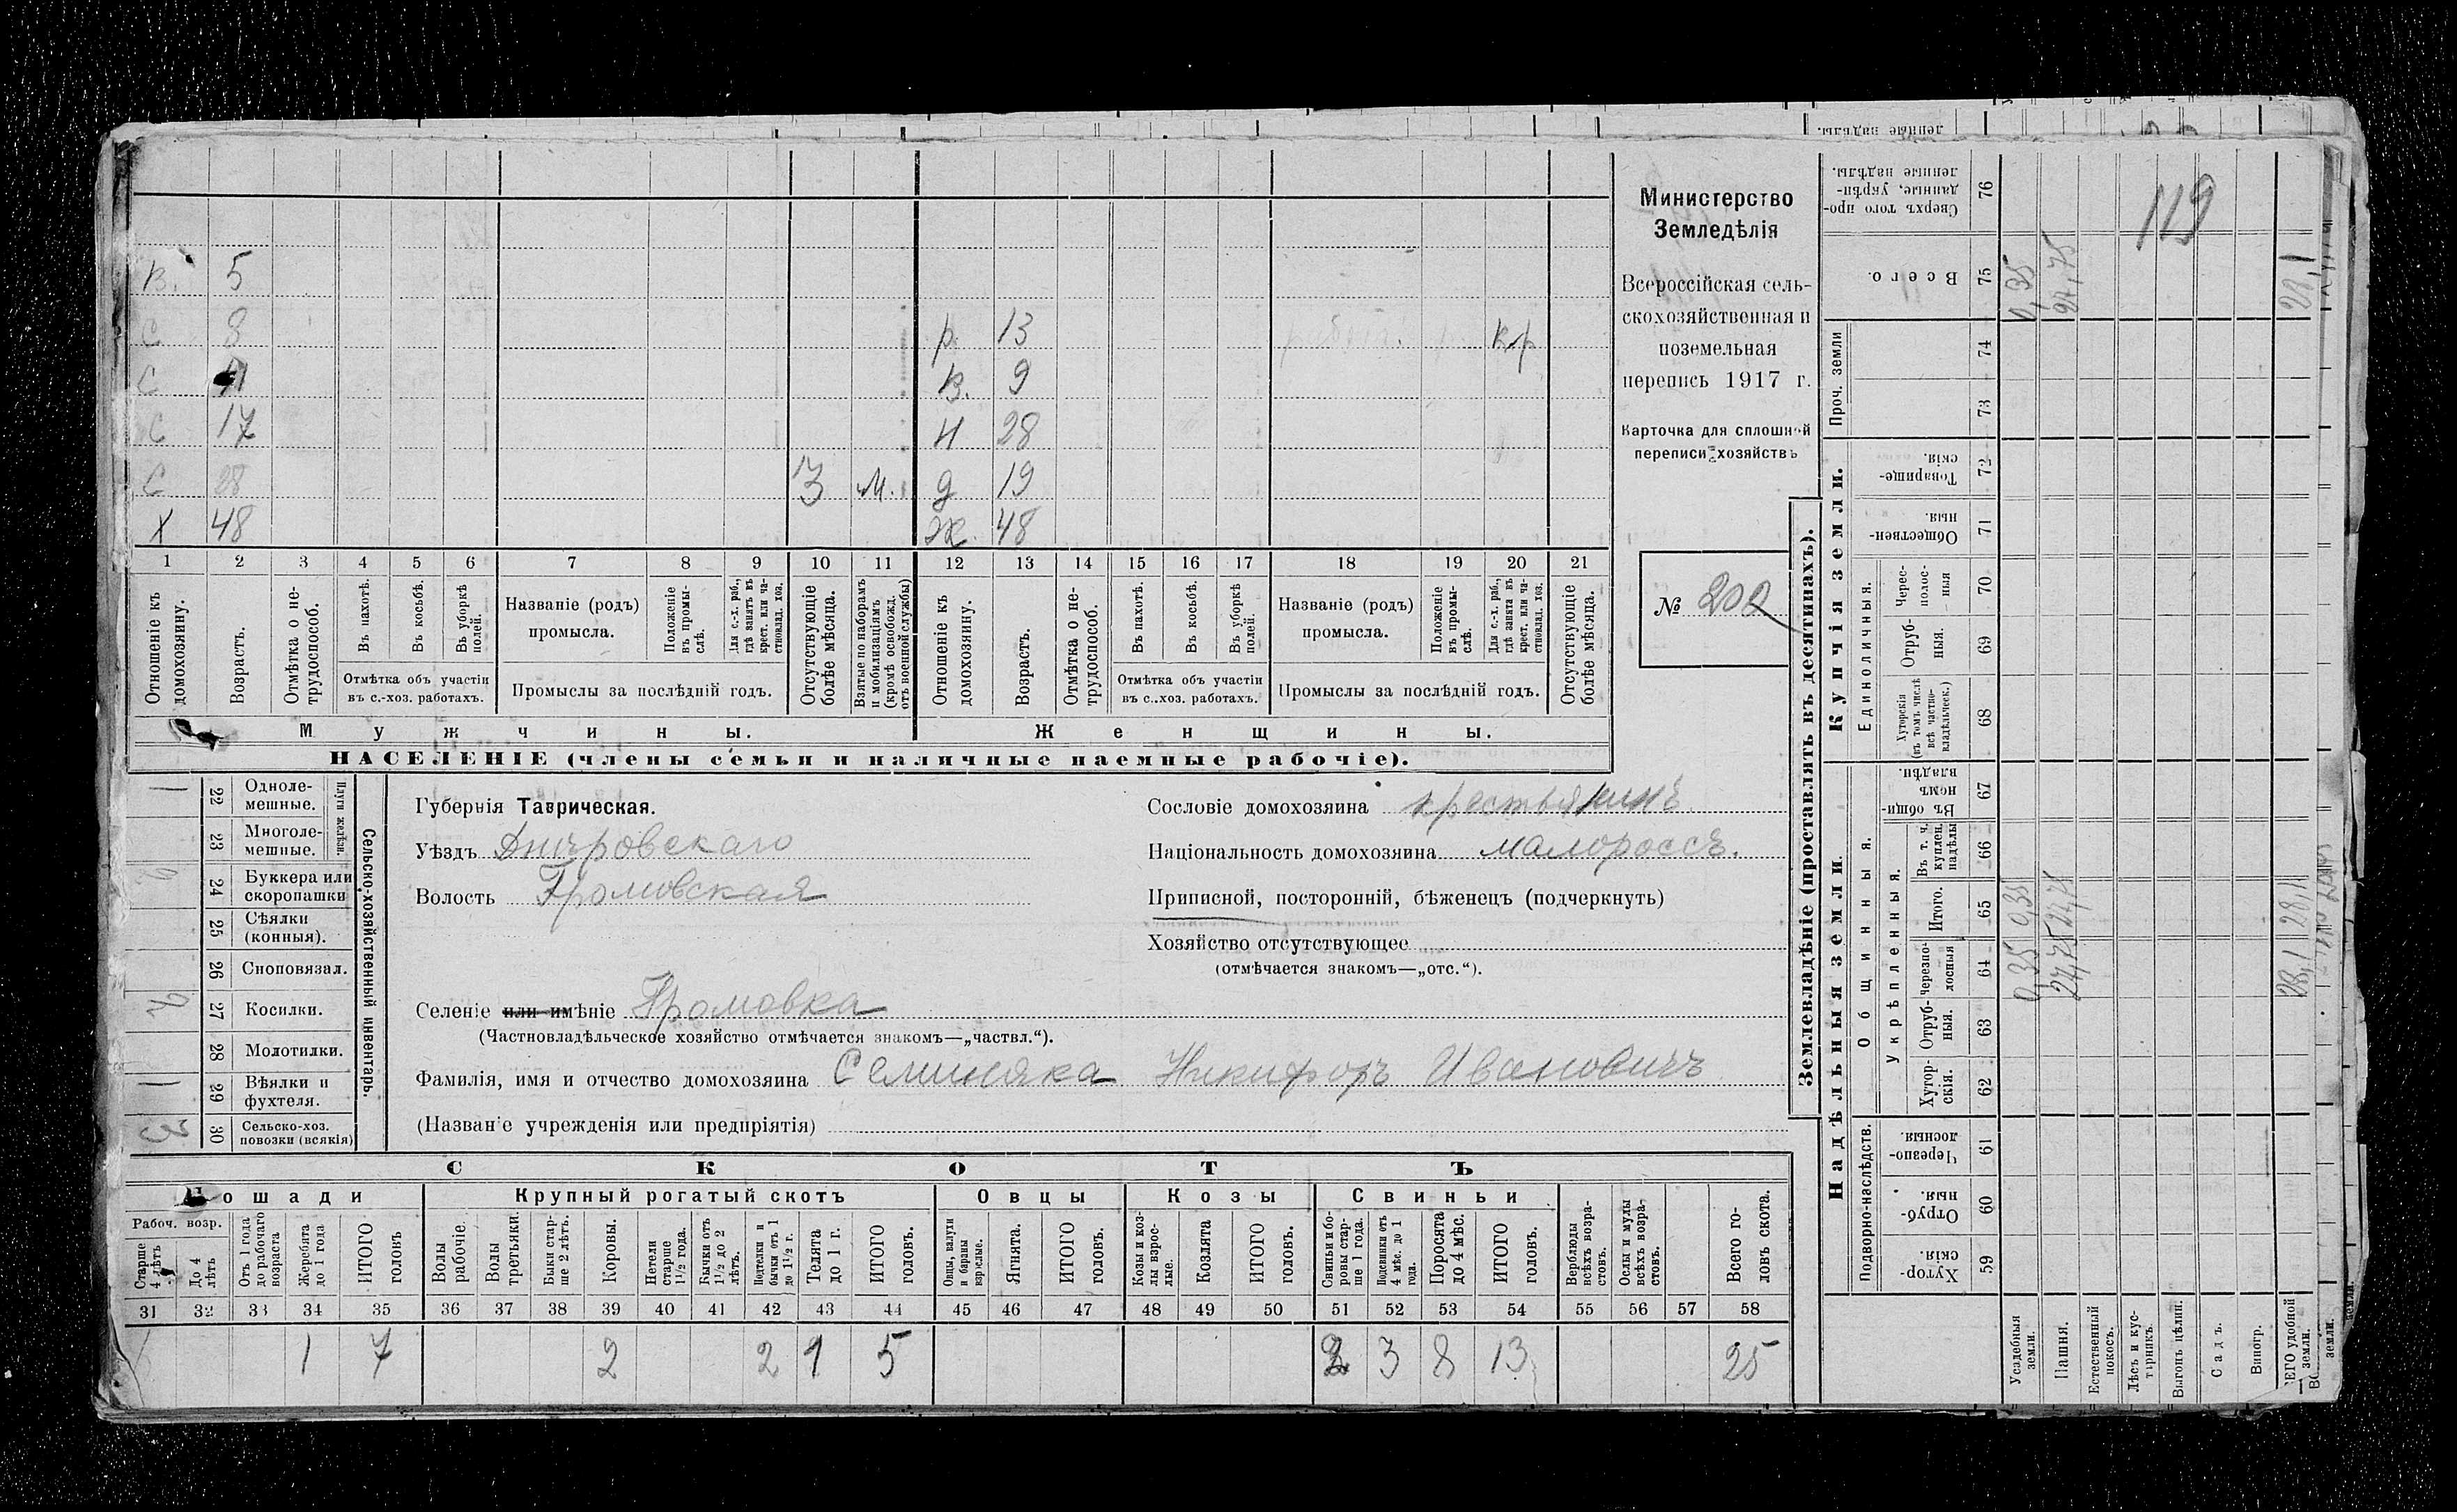 В. 5
С 8 р. 13 кр
С В. 9
С 17 Н 28
С 28 3 м. д 19
Х 48 Ж. 48
1 2 3 4 5 6 7 8 9 10 11 12 13 14 15 16 17 18 19 20 21
Отношеніе къ домохозяину.
Возрастъ.
Отмѣтка о не-трудоспособ.
Въ пахотѣ.
Въ косьбѣ.
Въ уборкѣ полей.
Отмѣтка объ участіи
въ с.-хоз. работахъ.
Названіе (родъ)
промысла.
Положеніе въ промы-слѣ.
Для с.-х. раб., гдѣ занятъ въ крест. или ча-стновлад. хоз.
Промыслы за послѣдній годъ.
Отсутствующіе болѣе мѣсяца.
Взятые по наборамъ и мобилизаціямъ (кромѣ освобожд. отъ военной службы)
Отношеніе къ домохозяину.
Возрастъ.
Отмѣтка о не-трудоспособ.
Въ пахотѣ.
Въ косьбѣ.
Въ уборкѣ полей.
Отмѣтка объ участіи
въ с.-хоз. работахъ.
Названіе (родъ)
промысла.
Положеніе въ промы-слѣ.
Для с.-х. раб., гдѣ занята въ крест. или ча-стновлад. хоз.
Промыслы за послѣдній годъ.
Отсутствующіе болѣе мѣсяца.
Мужчины. Женщины.
НАСЕЛЕНІЕ (члены семьи и наличные наемные рабочіе).
Министерство
Земледѣлія
Всероссійская сель-
скохозяйственная и
поземельная
перепись 1917 г.
Карточка для сплошной
переписи хозяйствъ
№ 200
Сельско-хозяйственный инвентарь.
Плуги желѣзн.
1 22 Одноле-мешные.
23 Многоле-мешные.
24 Буккера или скоропашки
25 Сѣялки (конныя).
26 Сноповязал.
27 Косилки.
28 Молотилки.
1 29 Вѣялки и фухтеля.
3 30 Сельско-хоз. повозки (всякія)
Губернія Таврическая.
Уѣздъ Днѣпровскаго
Волость Громовская
Селеніе или имѣніе Громовка
(Частновладѣльческое хозяйство отмѣчается знакомъ—„частвл.“).
Фамилія, имя и отчество домохозяина Семиняка Никифоръ Ивановичъ
(Названіе учрежденія или предпріятія)
Сословіе домохозяина крестьянинъ
Національность домохозяина малороссъ.
Приписной, посторонній, бѣженецъ (подчеркнуть)
Хозяйство отсутствующее
(отмѣчается знакомъ—„отс.“).
СКОТЪ
Лошади Крупный рогатый скотъ Овцы Козы Свиньи
Рабоч. возр.
Старше 4 лѣтъ
До 4 лѣтъ
Отъ 1 года до рабочаго возраста
Жеребята до 1 года
ИТОГО головъ
Волы рабочіе.
Волы третьяки.
Быки стар-ше 2 лѣтъ.
Коровы.
Нетели старше 1½ года.
Бычки отъ 1½ до 2 лѣтъ.
Подтелки и бычки отъ 1 до 1½ г.
Телята до 1 г.
ИТОГО головъ.
Овцы, валухи и бараны взрослые.
Ягнята.
ИТОГО головъ.
Козы и коз-лы взрос-лые.
Козлята
ИТОГО головъ.
Свиньи и бо-ровы стар-ше 1 года.
Подсвинки отъ 4 мѣс. до 1 года.
Поросята до 4 мѣс.
ИТОГО головъ.
Верблюды всѣхъ возра-стовъ.
Ослы и мулы всѣхъ возра-стовъ.
Всего го-ловъ скота.
31 32 33 34 35 36 37 38 39 40 41 42 43 44 45 46 47 48 49 50 51 52 53 54 55 56 57 58
1 7 2 2 1 5 2 3 8 13 25
Землевладѣніе (проставлять въ десятинахъ).
Купчія земли.
Надѣльныя земли.
Сверхъ того про-данные, укрѣп-ленные надѣлы. 76
Всего. 75 0,35 27,75 28,1
119
Проч. земли 74 73
Товарище-скія. 72
Обществен-ныя. 71
Единоличныя.
Черес-полос-ныя 70
Отруб-ныя. 69
Хуторскія (въ томъ числѣ всѣ частно-владѣльческ.) 68
Общинныя.
Въ общин-номъ владѣн. 67
Укрѣпленныя.
Въ т. ч. куплен. надѣлы 66
Итого. 65 0,35 27,75 28,1
Черезпо-лосныя 64 0,35 27,75 28,1
Отруб-ныя. 63
Хутор-скія. 62
Подворно-наслѣдств.
Черезпо-лосныя. 61
Отруб-ныя. 60
Хутор-скія. 59
Усадебныя земли.
Пашня.
Естественный покосъ.
Лѣсъ и кус-тарникъ.
Выгонъ цѣлин.
Садъ.
Виногр.
ВСЕГО удобной земли.